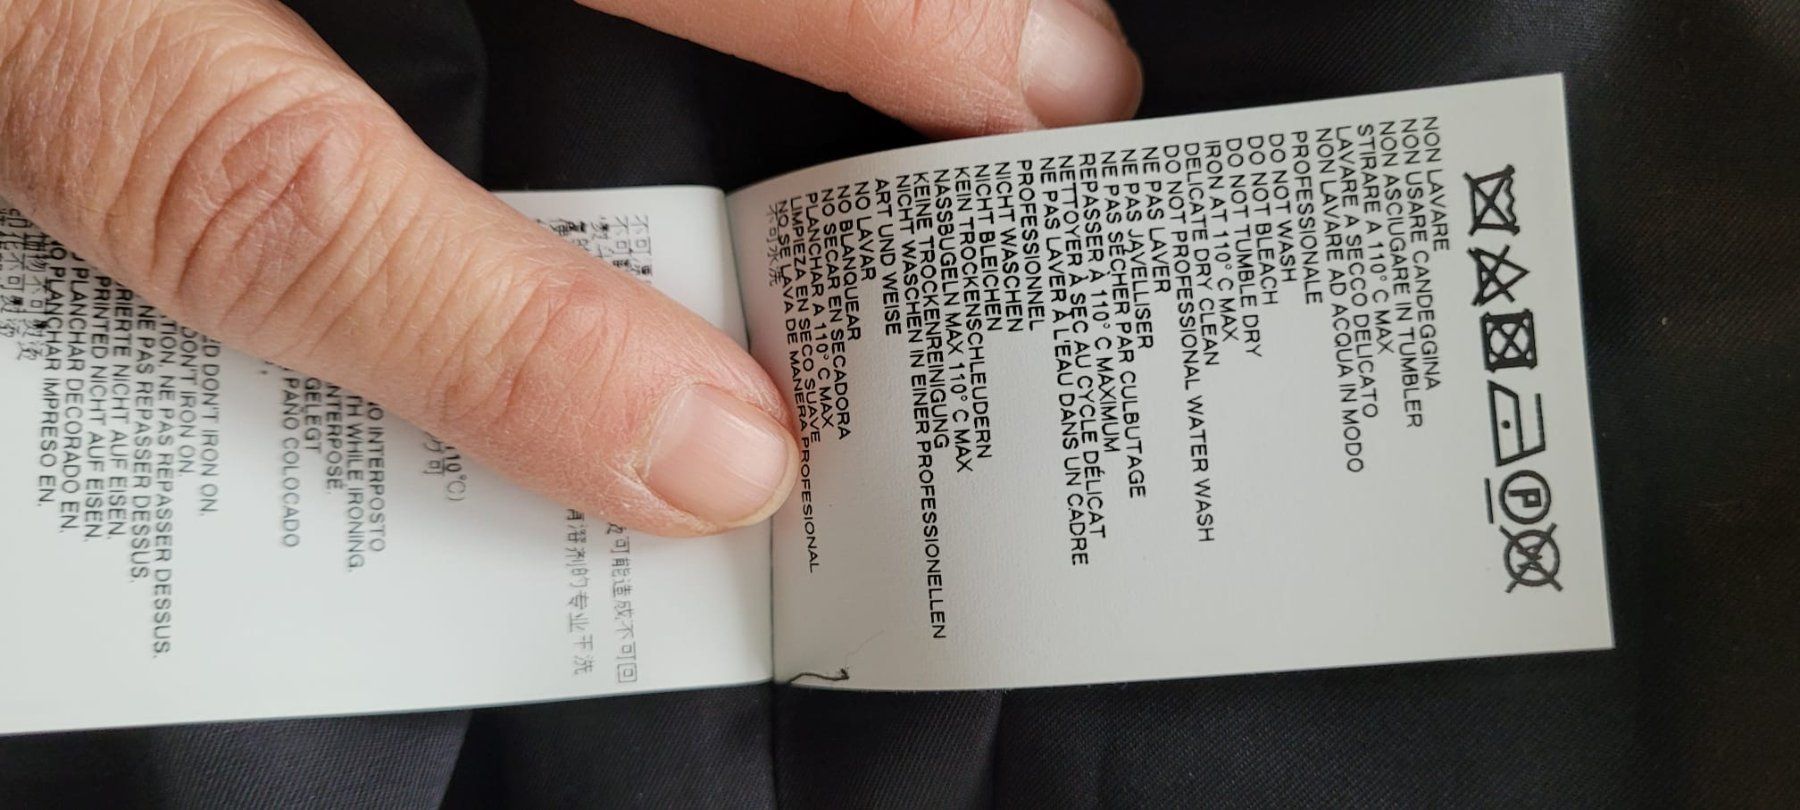 P
NON LAVARE
NON USARE CANDEGGINA
NON ASCIUGARE IN TUMBLER
STIRARE A 110° C MAX
LAVARE A SECCO DELICATO
NON LAVARE AD ACQUA IN MODO
PROFESSIONALE
DO NOT WASH
DO NOT BLEACH
DO NOT TUMBLE DRY
IRON AT 110° C MAX
DELICATE DRY CLEAN
DO NOT PROFESSIONAL WATER WASH
NE PAS LAVER
NE PAS JAVELLISER
NE PAS SÉCHER PAR CULBUTAGE
REPASSER À 110° C MAXIMUM
NETTOYER À SEC AU CYCLE DÉLICAT
NE PAS LAVER À L'EAU DANS UN CADRE
PROFESSIONNEL
NICHT WASCHEN
NICHT BLEICHEN
KEIN TROCKENSCHLEUDERN
NASSBÜGELN MAX 110° C MAX
KEINE TROCKENREINIGUNG
NICHT WASCHEN IN EINER PROFESSIONELLEN
ART UND WEISE
NO LAVAR
NO BLANQUEAR
NO SECAR EN SECADORA
PLANCHAR A 110° C MAX
LIMPIEZA EN SECO SUAVE
NO SE LAVA DE MANERA PROFESIONAL
不可水洗
不可
不可 可能造成不可回
溶剂的专业干洗
10°C)
方可
O INTERPOSTO
TH WHILE IRONING.
NTERPOSÉ.
GELEGT
PAÑO COLOCADO
ED DON'T IRON ON.
DON'T IRON ON.
TION, NE PAS REPASSER DESSUS.
NE PAS REPASSER DESSUS.
RIERTE NICHT AUF EISEN.
PRINTED NICHT AUF EISEN.
O PLANCHAR DECORADO EN.
O PLANCHAR IMPRESO EN.
物不可熨烫
印花不可熨烫